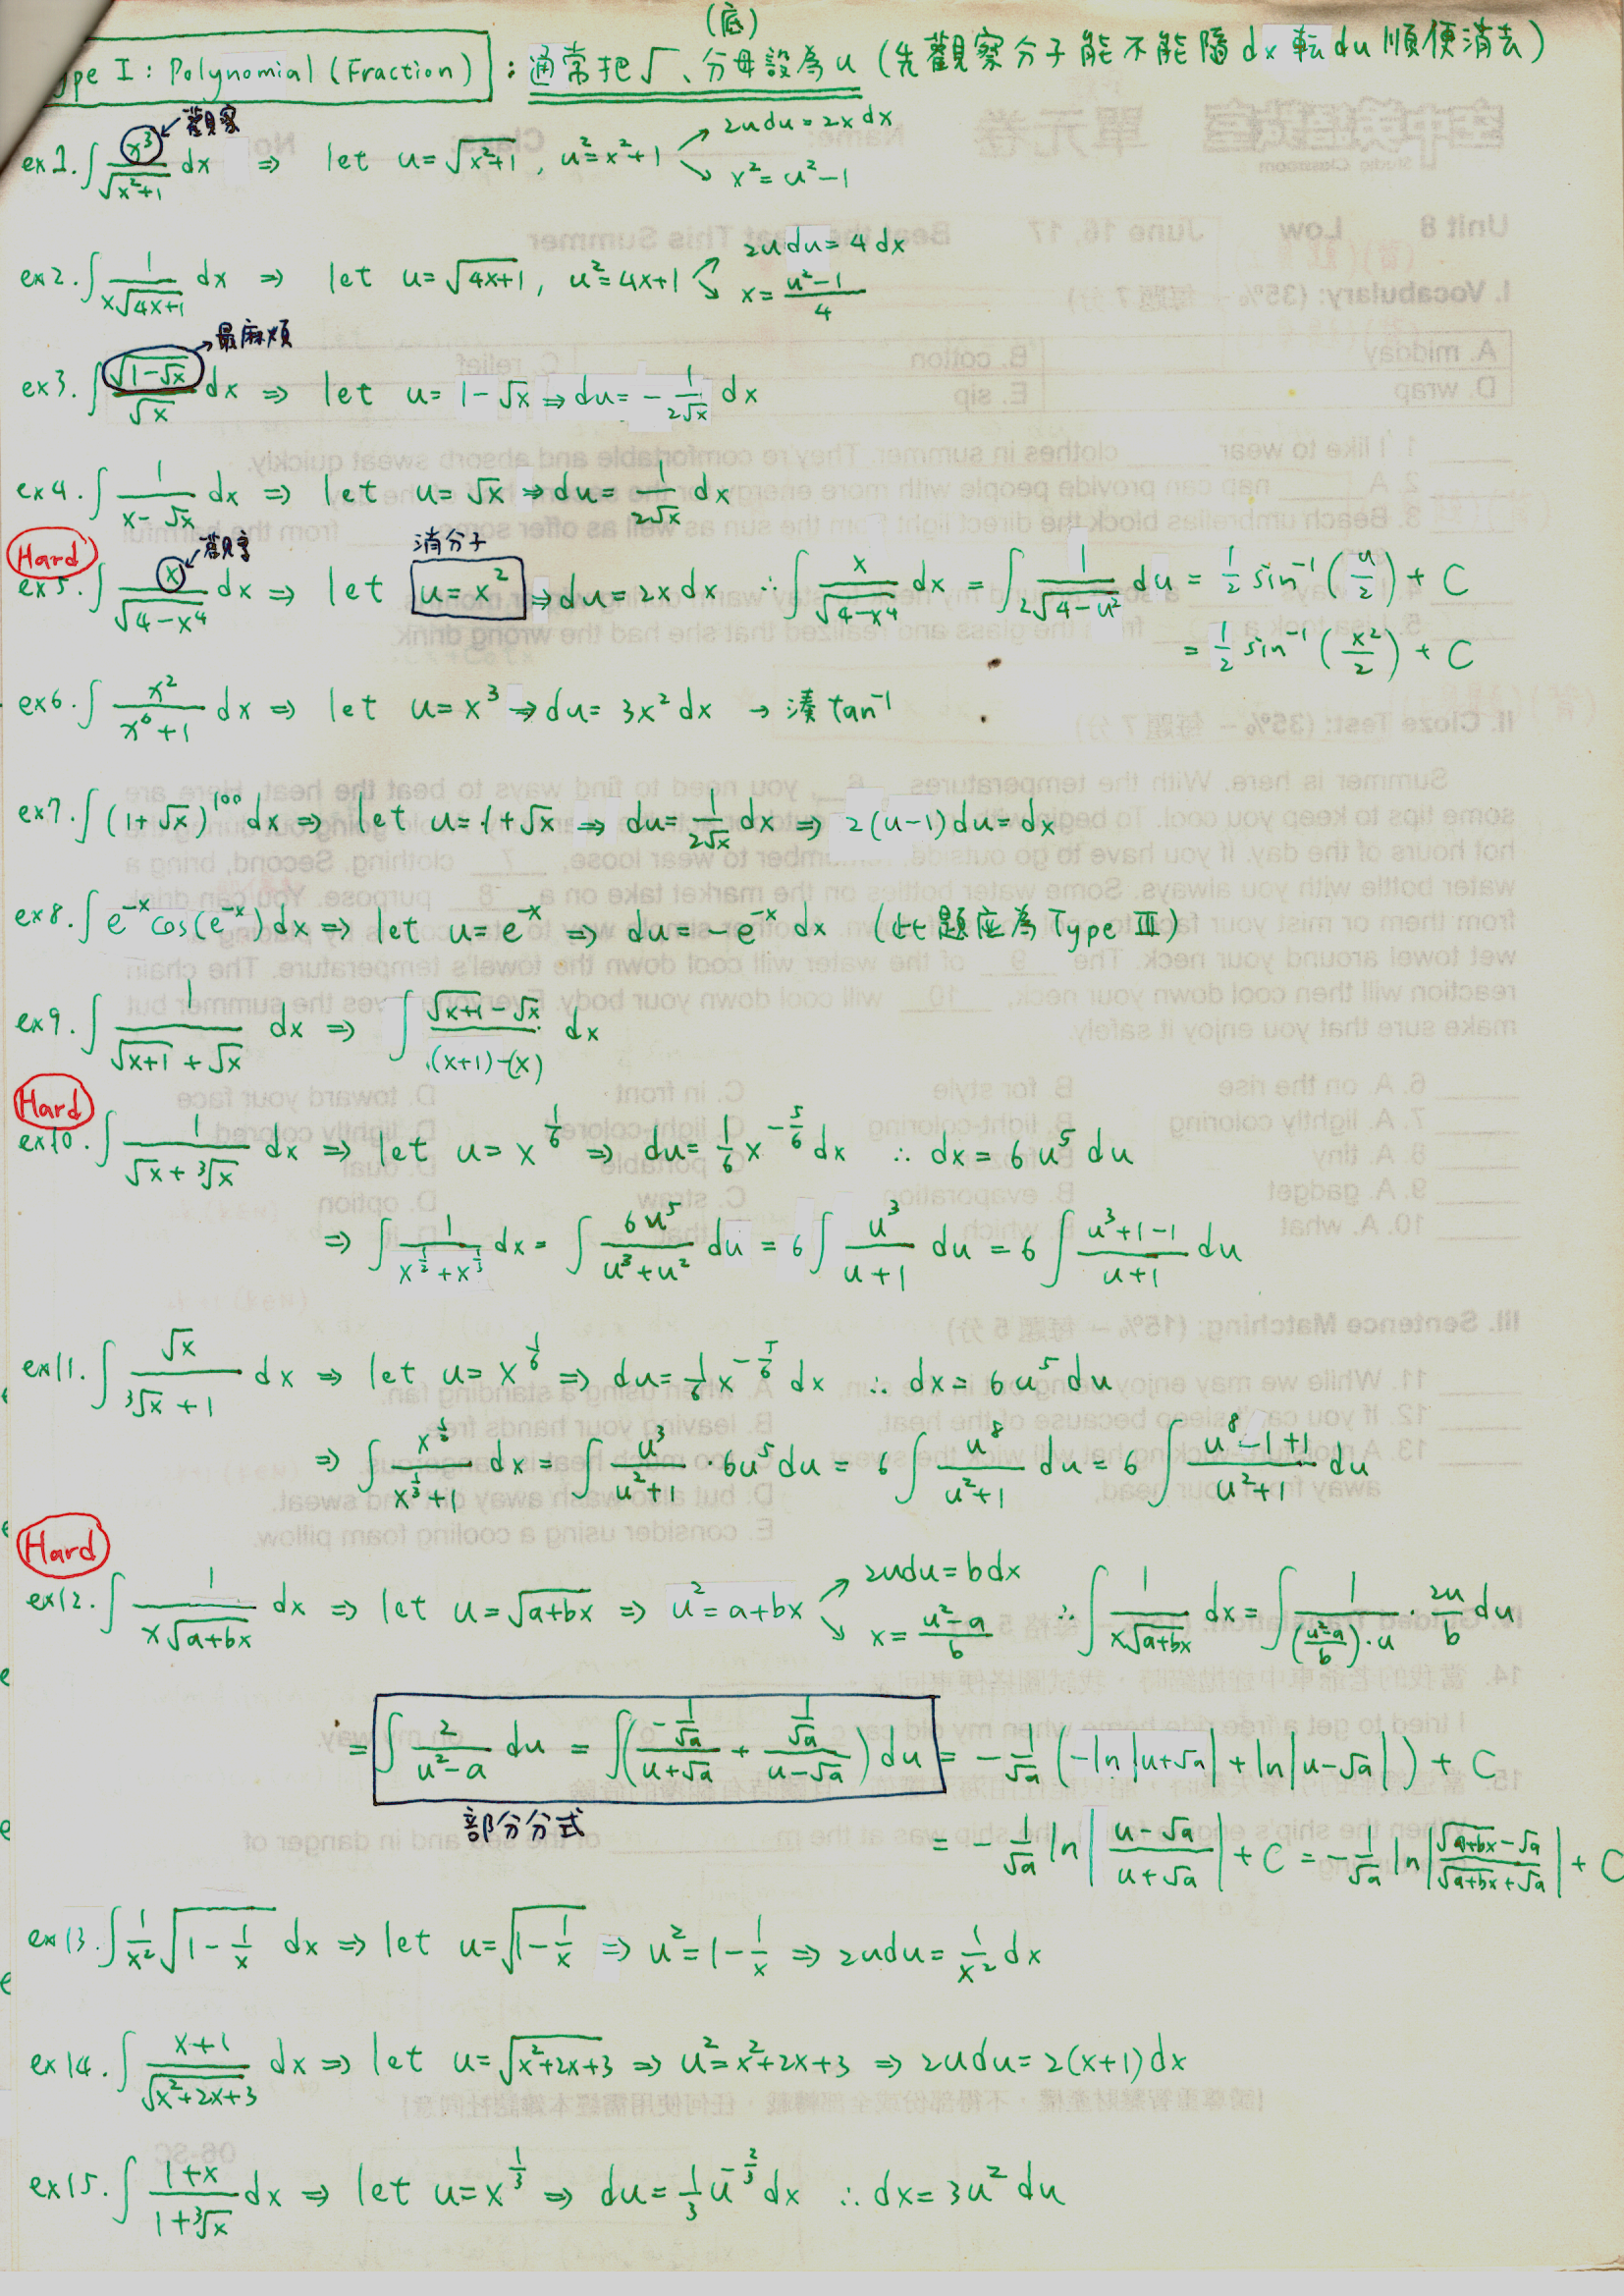 (底)
ype I : Polynomial (Fraction) : 通常把√、分母設為u (先觀察分子能不能隨dx転du順便消去)
觀察
ex1. ∫ x³/√(x²+1) dx ⇒ let u=√(x²+1), u²=x²+1 ↗ 2udu=2xdx
↘ x²=u²-1
ex2. ∫ 1/(x√(4x+1)) dx ⇒ let u=√(4x+1), u²=4x+1 ↗ 2udu=4dx
↘ x=(u²-1)/4
→最麻煩
ex3. ∫ √(1-√x)/√x dx ⇒ let u=1-√x ⇒ du=-1/(2√x) dx
ex4. ∫ 1/(x-√x) dx ⇒ let u=√x ⇒ du=1/(2√x) dx
Hard
觀察 消分子
ex5. ∫ x/√(4-x⁴) dx ⇒ let u=x² ⇒ du=2xdx ∴ ∫ x/√(4-x⁴) dx = ∫ 1/(2√(4-u²)) du = 1/2 sin⁻¹(u/2) + C
= 1/2 sin⁻¹(x²/2) + C
ex6. ∫ x²/(x⁶+1) dx ⇒ let u=x³ ⇒ du=3x²dx → 湊tan⁻¹
ex7. ∫ (1+√x)¹⁰⁰ dx ⇒ let u=1+√x ⇒ du=1/(2√x) dx ⇒ 2(u-1)du=dx
ex8. ∫ e⁻ˣcos(e⁻ˣ)dx ⇒ let u=e⁻ˣ ⇒ du=-e⁻ˣ dx (此題应為Type III)
ex9. ∫ 1/(√(x+1)+√x) dx ⇒ ∫ (√(x+1)-√x)/((x+1)-(x)) dx
Hard
ex10. ∫ 1/(√x+³√x) dx ⇒ let u=x^(1/6) ⇒ du=1/6 x^(-5/6) dx ∴ dx=6u⁵du
⇒ ∫ 1/(x^(1/2)+x^(1/3)) dx = ∫ 6u⁵/(u³+u²) du = 6∫ u³/(u+1) du = 6∫ (u³+1-1)/(u+1) du
ex11. ∫ √x/(³√x+1) dx ⇒ let u=x^(1/6) ⇒ du=1/6 x^(-5/6) dx ∴ dx=6u⁵du
⇒ ∫ x^(1/2)/(x^(1/3)+1) dx = ∫ u³/(u²+1)·6u⁵du = 6∫ u⁸/(u²+1) du = 6∫ (u⁸-1+1)/(u²+1) du
Hard
ex12. ∫ 1/(x√(a+bx)) dx ⇒ let u=√(a+bx) ⇒ u²=a+bx ↗ 2udu=bdx
↘ x=(u²-a)/b ∴ ∫ 1/(x√(a+bx)) dx = ∫ 1/(((u²-a)/b)·u) · 2u/b du
= ∫ 2/(u²-a) du = ∫ ((-1/√a)/(u+√a) + (1/√a)/(u-√a)) du = -1/√a (-ln|u+√a| + ln|u-√a|) + C
部分分式
= -1/√a ln|(u-√a)/(u+√a)| + C = -1/√a ln|(√(a+bx)-√a)/(√(a+bx)+√a)| + C
ex13. ∫ 1/x² √(1-1/x) dx ⇒ let u=√(1-1/x) ⇒ u²=1-1/x ⇒ 2udu=1/x² dx
ex14. ∫ (x+1)/√(x²+2x+3) dx ⇒ let u=√(x²+2x+3) ⇒ u²=x²+2x+3 ⇒ 2udu=2(x+1)dx
ex15. ∫ (1+x)/(1+³√x) dx ⇒ let u=x^(1/3) ⇒ du=1/3 u^(-2/3) dx ∴ dx=3u²du